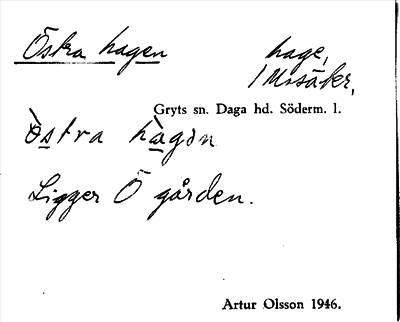 Östra hagen hage,
1 Mssäter,
Gryts sn. Daga hd. Söderm. l.
ö̀stra hàgən
Ligger Ö gården.
Artur Olsson 1946.